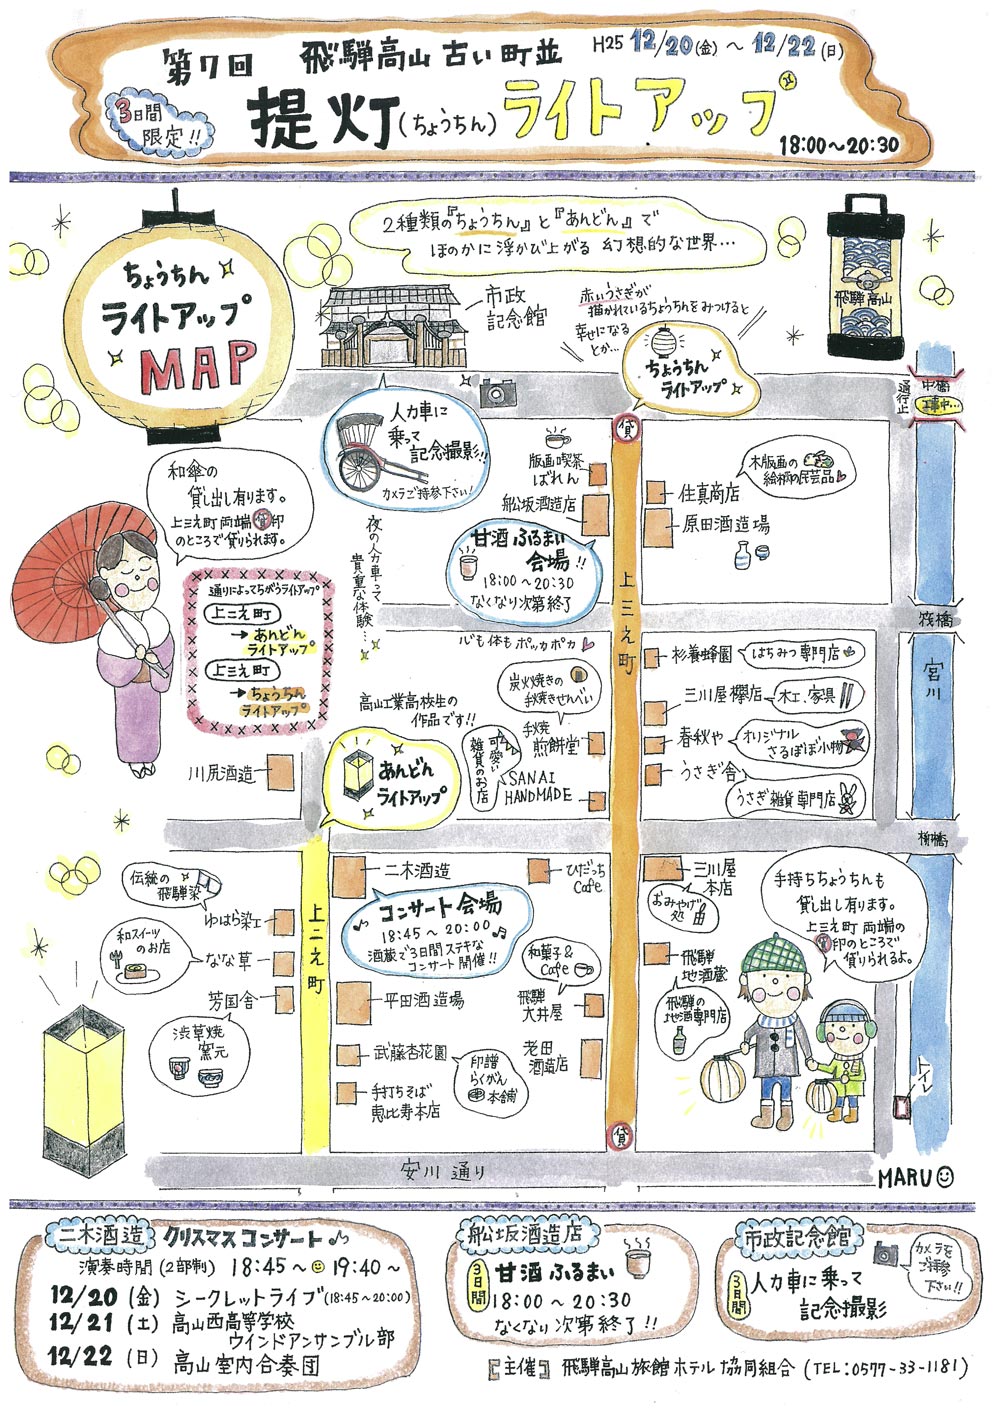 第7回 飛騨高山 古い町並 H25 12/20(金) ～ 12/22(日)
3日間
限定!!
提灯(ちょうちん)ライトアップ
18:00～20:30
2種類の『ちょうちん』と『あんどん』で
ほのかに浮かび上がる 幻想的な世界…
ちょうちん
ライトアップ
MAP
市政
記念館
赤いうさぎが
描かれているちょうちんをみつけると
幸せになる
とか…
ちょうちん
ライトアップ
飛騨高山
通行止
中橋
工事中…
人力車に
乗って
記念撮影!!
カメラご持参下さい!
夜の人力車って
貴重な体験…
和傘の
貸し出し有ります。
上三之町両端貸印
のところで借りられます。
通りによってちがうライトアップ
上二之町
→あんどん
ライトアップ
上三之町
→ちょうちん
ライトアップ
貸
版画喫茶
ばれん
舩坂酒造店
甘酒ふるまい
会場!!
18:00～20:30
なくなり次第終了
心も体もポッカポカ
木版画の
絵柄の民芸品
住真商店
原田酒造場
上三之町
筏橋
宮川
杉養蜂園
はちみつ専門店
三川屋欅店
木工、家具
春秋や
オリジナル
さるぼぼ小物
うさぎ舎
うさぎ雑貨専門店
炭火焼きの
手焼きせんべい
手焼
煎餅堂
可愛い
雑貨のお店
SANAI
HANDMADE
高山工業高校生の
作品です!!
あんどん
ライトアップ
川尻酒造
柳橋
伝統の
飛騨染
ゆはら染工
和スイーツ
のお店
なな草
芳国舎
渋草焼
窯元
上二之町
二木酒造
コンサート会場
18:45～20:00
酒蔵で3日間ステキな
コンサート開催!!
平田酒造場
武藤杏花園
手打ちそば
恵比寿本店
印譜
らくがん
本舗
ひだっち
Cafe
和菓子&
Cafe
飛騨
大井屋
老田
酒造店
三川屋
本店
おみやげ
処
飛騨
地酒蔵
飛騨の
地酒専門店
手持ちちょうちんも
貸し出し有ります。
上三之町両端の
貸印のところで
借りられるよ。
トイレ
貸
安川通り
MARU
二木酒造 クリスマスコンサート
演奏時間(2部制) 18:45～ 19:40～
12/20(金) シークレットライブ(18:45～20:00)
12/21(土) 高山西高等学校
ウインドアンサンブル部
12/22(日) 高山室内合奏団
舩坂酒造店
3日間
甘酒ふるまい
18:00～20:30
なくなり次第終了!!
市政記念館
カメラを
ご持参
下さい!!
3日間
人力車に乗って
記念撮影
【主催】飛騨高山旅館ホテル協同組合(TEL:0577-33-1181)